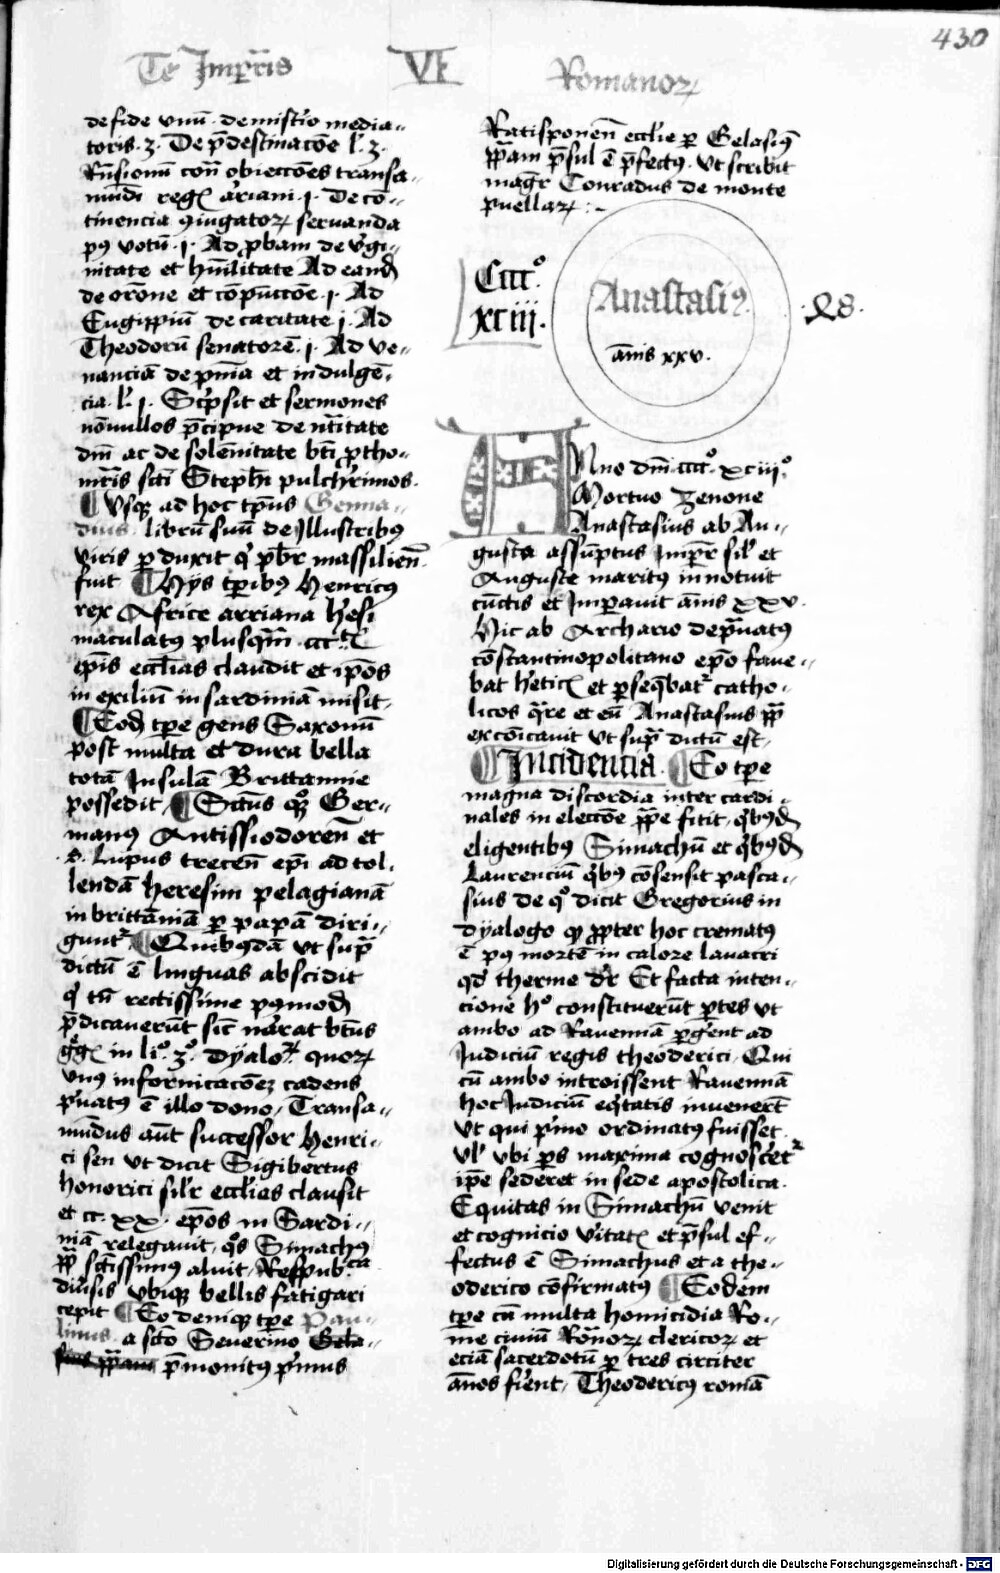 430
De Imp̄ris VI Romanoꝝ
de fide vnū . de misterio media-
toris . 3 . De p̄destinacōe l . 3 .
Rn̄sionū con̄ obieccōes transa-
mūdi regꝭ arriani . 1 . De cō-
tinencia ꝯiugatoꝝ seruanda
pꝰ votū . 1 . Ad ꝓbam de v̓gi-
nitate et hūilitate Ad eand̄
de or̄one et cōpūccōe . 1 . Ad
Eugippiū de caritate 1 . Ad
Theodorū senatorē . 1 . Ad ve-
nanciā de pn̄ia et indulgē-
cia . l . 1 . Sc̓psit et sermones
nōnullos p̄cipue de nt̄itate
dn̄i ac de solēnitate bt̄i ꝓtho-
mr̄is sc̄ti Steph̄i pulch̓rimos .
¶ Vsqꝫ ad hoc tp̄us Genna-
dius . librū suū de Illustribꝰ
viris ꝑduxit qͥ pb̄r massilien̄
fuit ¶ Hys tꝑibꝰ Henricus
rex Affrice arriana h̓esi
maculatꝰ plusqͣm̄ . ccc
ep̄is eccl̄ias claudit et ip̄os
in exiliū in sardiniā misit .
¶ Eod̄ tꝑe gens Saxonū
post multa et dura bella
totā Insulā Brittannie
possedit ¶ Sctūs qͦꝫ Ger-
manꝰ Antissiodoren̄ et
S . Lupus trecen̄ ep̄i ad tol-
lendā heresim pelagianā
in brittāniā ꝑ papā diri-
gunt̄ ¶ Quibꝰdā vt sup̄
dictū ē linguas abscidit
qͥ tn̄ rectissime pꝰmod̄
p̄dicauerūt sic̄ narrat bt̄us
gͦgꝭ in liͦ . 3ͦ . dyaloꝝ quoꝝ
vnus in fornicacōeꝫ cadens
p̓uatꝰ ē illo dono , Transa-
mūdus aūt successor Henri-
ci seu vt dicit Sigibertus
honorici sil̄r eccl̄ies clausit
et cc . xx . ep̄os in Sardi-
niā relegauit , qͦs Simachꝰ
pp̄ sc̄tissimꝰ aluit , Respubᶜᵃ
diu̓sis vbiqꝫ bellis fatigari
cepit ¶ Eo deniqꝫ tꝑe Pau-
linus . a sc̄to Seuerino
p̄monitꝰ p̓mus
Ratisponen̄ eccl̄ie ꝑ Gelasiū
pp̄am p̄sul ē p̄fectꝰ . vt scribit
mag̓r Conradus de monte
puellaꝝ :-
Ccccͦ .
xciii .
Anastasiꝰ
ān̄is xxv .
Anno dn̄i . ccccͦ . xciiiͦ .
Mortuo Zenone
Anastasius ab Au-
gusta assūptus Imp̄r sil̓ et
Auguste maritꝰ innotuit
cūctis et Imꝑauit ān̄is xxv .
Hic ab Archario dep̄uatꝰ
cōstantinopolitano ep̄o faue-
bat h̓eticꝭ et ꝑseqͣbat̄ catho-
licos qͣre et eū Anastasius pp̄
excōicauit vt sup̄ dictū est ,
¶ Incidencia . ¶ Eo tꝑe
magna discordia inter cardi-
nales in eleccōe pp̄e fit , qͥbꝰd̄
eligentibꝰ Simachū et qͥbꝰd̄
Laurenciū qͥbꝰ cōsensit pasca-
sius de qͦ dicit Gregorius in
dyalogo qꝫ ꝓpter hoc crematꝰ
ē pꝰ mortē in calore lauacri
qd̓ therme dr̄ Et facta inten-
cione hͦ constituerūt ꝑtes vt
ambo ad Rauennā ꝑgerent ad
Judiciū regis theoderici , Qui
cū ambo introissent Rauennā
hoc Judiciū eqͥtatis inuener̄t
vt qui p̓mo ordinatꝰ fuisset
vl̓ vbi ꝑs maxima cognoscet̄
ip̄e sederet in sede apostolica .
Equitas in Simachū venit
et cognicio v̓itatꝭ et p̄sul ef-
fectus ē Simachus et a the-
oderico cōfirmatꝰ ¶ Eodem
tꝑe cū multa homicidia Ro-
me ciuiū Ro̅noꝝ clericoꝝ et
eciā sacerdotū ꝑ tres circiter
ān̄os fi̓ent , Theodericꝰ romā
Digitalisierung gefördert durch die Deutsche Forschungsgemeinschaft - DFG